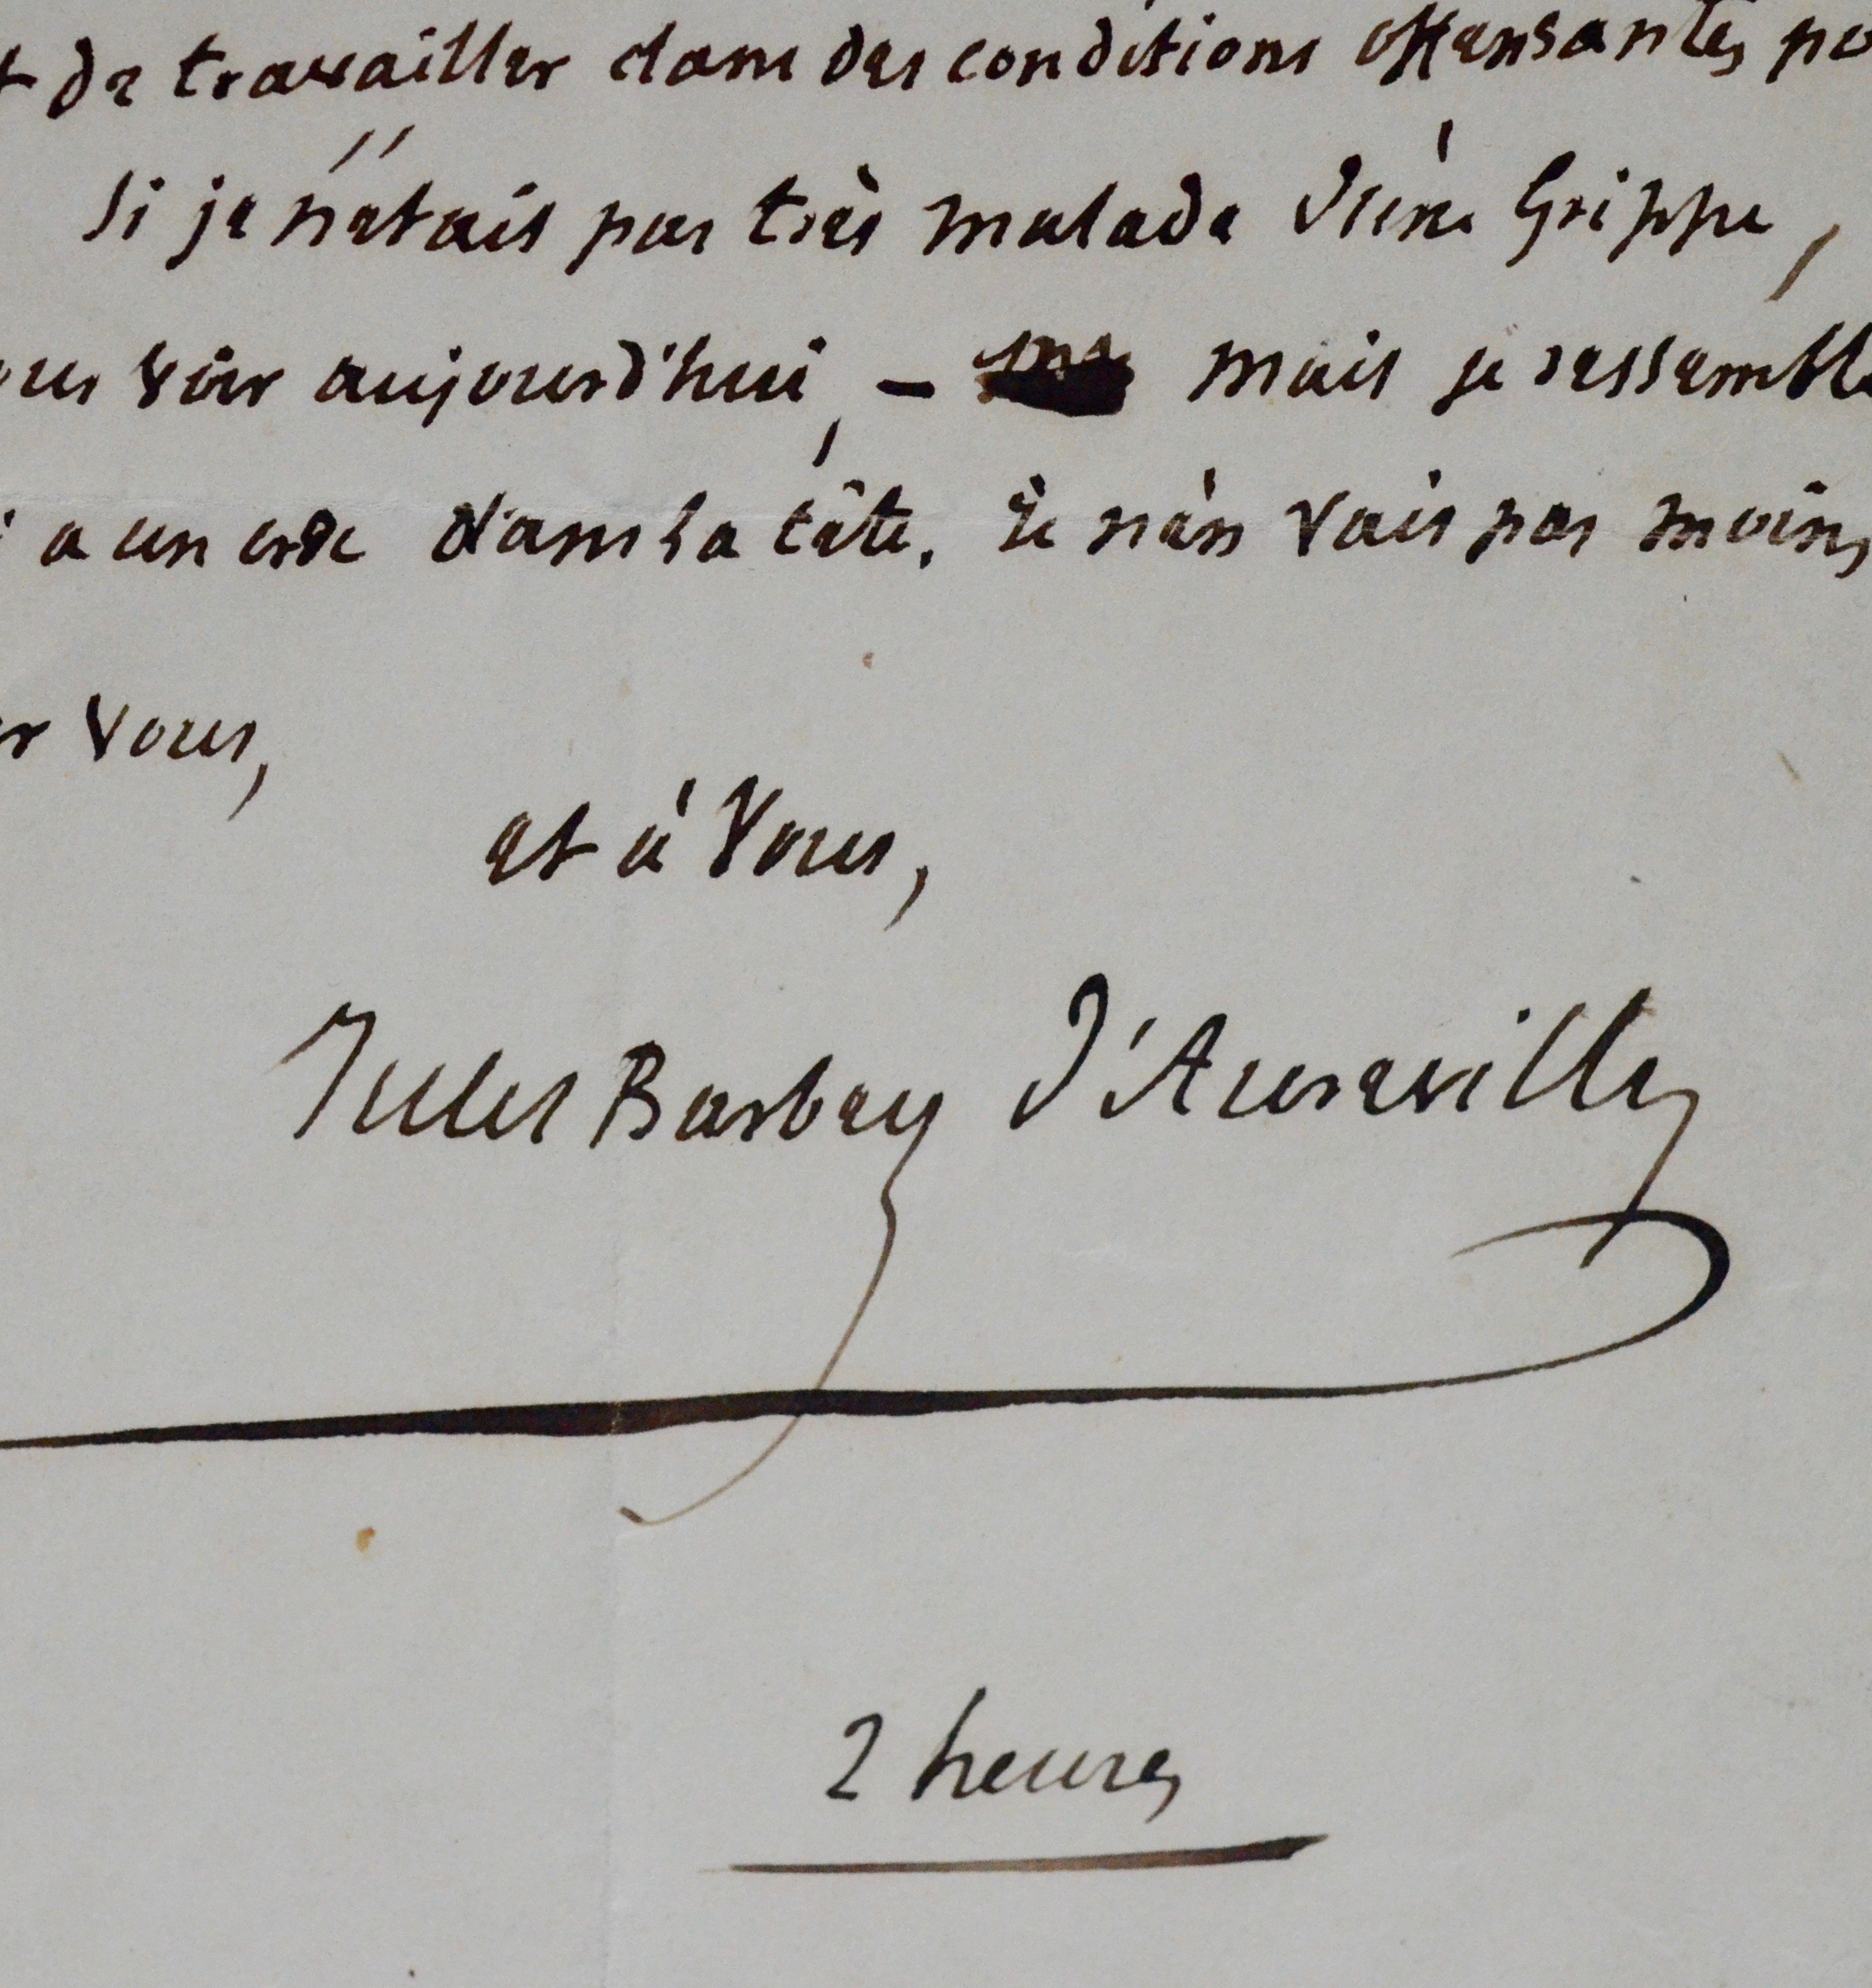 t de travailler dans des conditions offensantes po
Si je n'étais pas très malade d'une Grippe,
ous voir aujourd'hui, — mais je ressemble
i a un dans la tête. Je n'en vais pas moins
r vous,
et à vous,
Jules Barbey d'Aurevilly
2 heures